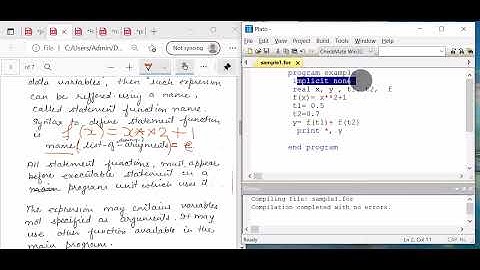 File | C:/Users/Admin/D...
Not syncing
of 7
data variables, then such expression
can be reffered using a name,
called statement function name.
Syntax to define statement function
is f(x)=x**2+1
name(list-of-arguments)=e
All statement functions, must appear
before executable statement in a
main program unit which uses it.
The expression may contains variables
not specified as arguments. It may
use other function available in the
main program.
Plato -
CheckMate Win32
sample1.for
program example
implicit none
real x, y , t1, t2, f
f(x)= x**2+1
t1= 0.5
t2=0.7
y= f(t1)+ f(t2)
print *, y
end program
Compiling file: sample1.for
Compilation completed with no errors.
Ln 2, Col 11